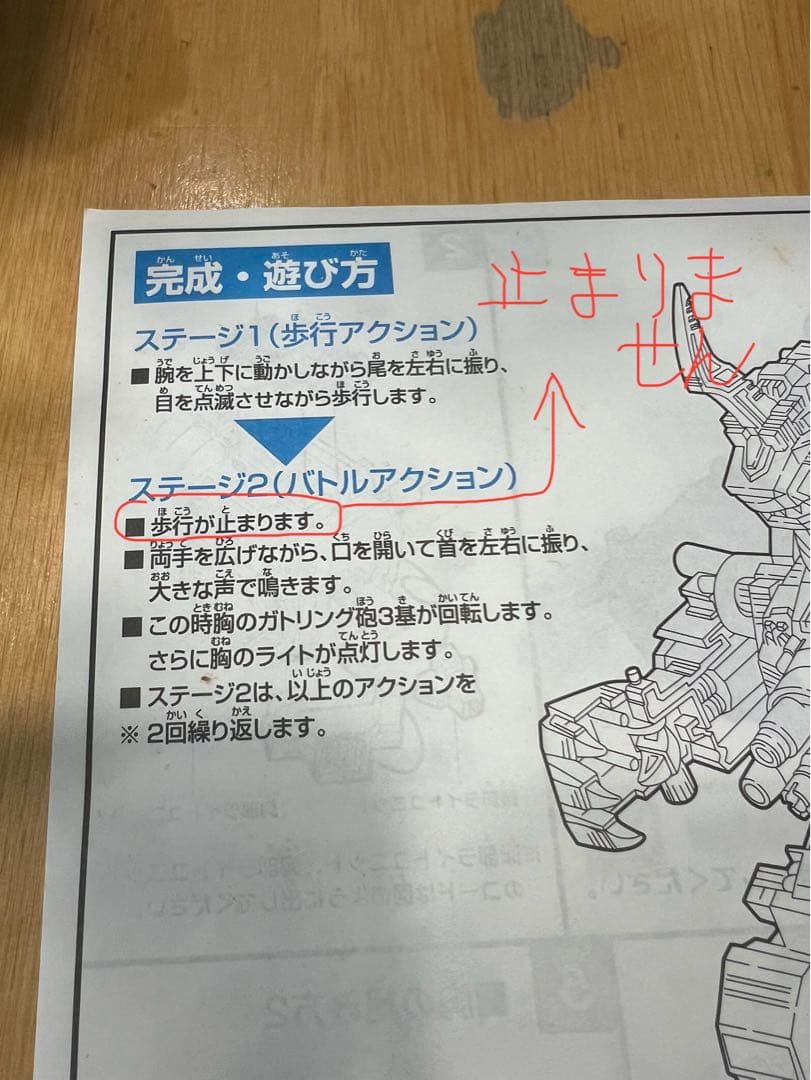 完成・遊び方
ステージ1(歩行アクション)
■ 腕を上下に動かしながら尾を左右に振り、
目を点滅させながら歩行します。
ステージ2(バトルアクション)
■ 歩行が止まります。
■ 両手を広げながら、口を開いて首を左右に振り、
大きな声で鳴きます。
■ この時胸のガトリング砲3基が回転します。
さらに胸のライトが点灯します。
■ ステージ2は、以上のアクションを
※ 2回繰り返します。
止まりま
せん